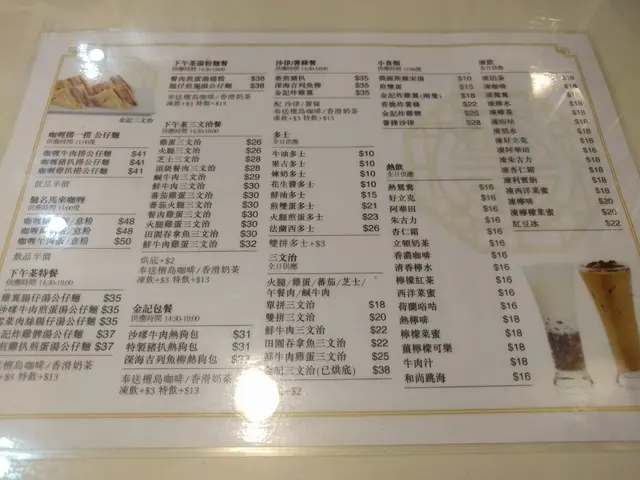 金記三文治
咖喱撈一撈 公仔麵
供應時間 11:00後
咖喱牛肉撈公仔麵 $41
咖喱豬扒撈公仔麵 $41
咖喱雞扒撈公仔麵 $41
飲品半價
馳名馬來咖喱
供應時間 11:00後
/意粉 $48
/意粉 $48
咖喱牛 /意粉 $50
飲品半價
下午茶特餐
供應時間 14:30-18:00
雞翼腸仔湯公仔麵 $35
沙嗲牛肉煎蛋公仔麵 $35
菜肉絲腸仔湯公仔麵 $35
記炸雞髀湯公仔麵 $37
煎雞扒煎蛋湯公仔麵 $37
檀島咖啡/香滑奶茶
+$3 特飲+$13
下午茶湯粉麵餐
供應時間 14:30-18:00
餐肉煎蛋湯 $38
腸仔煎蛋湯 $38
奉送檀島咖啡/香滑奶茶
凍飲+$3 特飲+$13
下午茶三文治餐
供應時間 14:30-18:00
雞蛋三文治 $26
火腿三文治 $26
芝士三文治 $28
頂級餐肉三文治 $28
鹹牛肉三文治 $29
鮮牛肉三文治 $30
蕃茄雞蛋三文治 $30
蕃茄火腿三文治 $30
餐肉雞蛋三文治 $30
火腿雞蛋三文治 $30
田園吞拿魚三文治 $30
鮮牛肉雞蛋三文治 $32
烘底+$2
奉送檀島咖啡/香滑奶茶
凍飲+$3 特飲+$13
金記包餐
供應時間 14:30-18:00
沙嗲牛肉熱狗包 $31
特製豬扒熱狗包 $31
深海吉列魚柳熱狗包
奉送檀島咖啡/香滑奶茶
凍飲+$3 特飲+$13
沙律/薯條餐
供應時間 14:30-18:00
香煎豬扒 $35
深海吉列魚柳 $35
金記炸雞翼 $35
配 沙律/薯條
奉送檀島咖啡/香滑奶茶
凍飲+$3 特飲+$13
多士
全日供應
牛油多士 $10
果占多士 $10
煉奶多士 $10
花生醬多士 $10
鮮油多士 $15
煎雙蛋多士 $21
火腿煎蛋多士 $23
法蘭西多士 $26
雙拼多士+$3
三文治
全日供應
火腿/雞蛋/蕃茄/芝士/
午餐肉/鹹牛肉
單拼三文治 $18
雙拼三文治 $20
鮮牛肉三文治 $22
田園吞拿魚三文治 $22
鮮牛肉雞蛋三文治 $25
金記三文治(已烘底) $38
+$2
小食類
供應時間 11:00後
俄羅斯雜菜湯 $10
煎雙蛋 $15
金記炸雞翼(兩隻) $18
香脆炸薯條 $22
金記炸雞髀 $25
薯條沙律 $28
熱飲
全日供應
熱鴛鴦 $16
好立克 $16
阿華田 $16
朱古力 $16
杏仁霜 $16
立頓奶茶 $16
香濃咖啡 $16
清香檸水 $16
檸檬紅茶 $16
西洋菜蜜 $16
荷蘭咕咕 $16
熱檸啡 $16
檸檬菜蜜 $16
薑檸檬可樂 $16
牛肉汁 $16
和尚跳海 $16
凍飲
全日供應
凍奶茶 $18
凍咖啡 $18
凍鴛鴦 $18
凍檸水 $18
凍檸茶 $18
凍咕咕 $18
凍奶水 $18
凍好立克 $18
凍阿華田 $18
凍朱古力 $18
凍杏仁霜 $18
凍利賓納 $18
凍西洋菜蜜 $18
凍檸啡 $20
凍檸檬菜蜜 $20
紅豆冰 $22